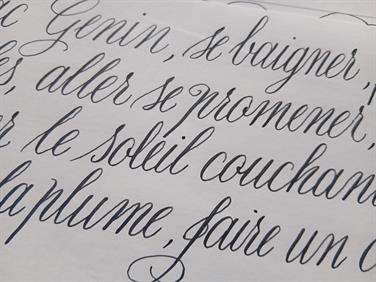 Genin, se baigner,
aller se promener,
le soleil couchan
la plume, faire un